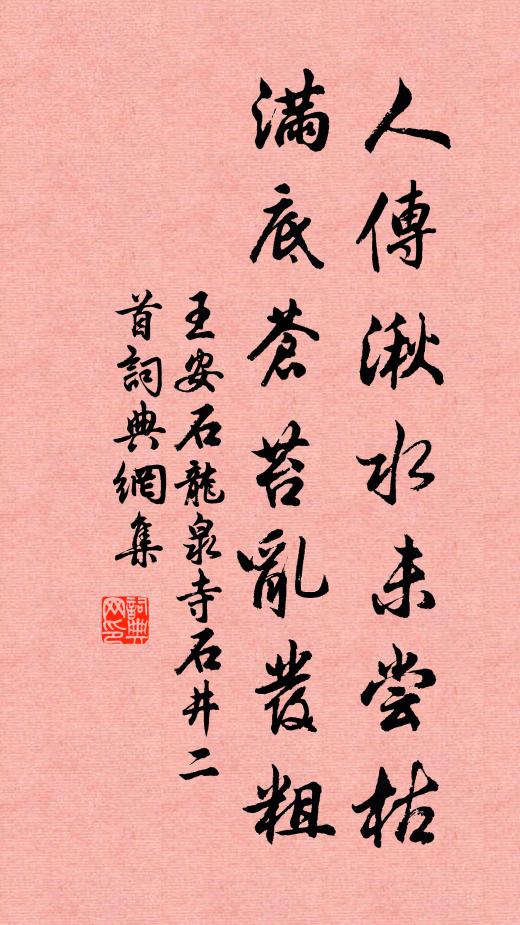 人傳湫水未尝枯
滿底蒼苔亂發粗
王安石龍泉寺石井二
首詞典網集
詞典网印